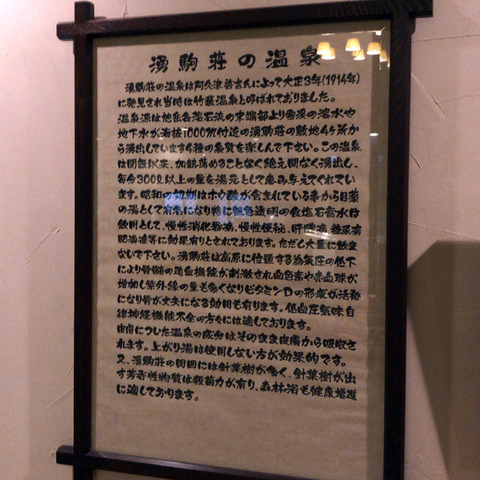 湧駒荘の温泉
湧駒荘の温泉は阿久津啓吉氏によって大正3年(1914年)
に発見され当時は竹葉温泉と呼ばれておりました。
温泉源は旭岳岩石流の末端部より雪渓の湯水や
地下水が海抜1000m付近の湧駒荘の敷地4ヶ所か
ら湧出しています4種の泉質を楽しんで下さい。この温泉
は開館以来、加鉱薄めることなく絶え間なく湧出し、
毎分300ℓ以上の量を湯元として恵み与えてくれてい
ます。昭和の初期はホウ酸が含まれている事から目薬
の湯として有名になり特に無色透明の食塩石膏水は
飲用として、慢性消化器病、慢性便秘、肝臓病、糖尿病
肥満症等に効果有りとされております。ただし大量に飲ま
ないで下さい。湧駒荘は高原に位置する為気圧の低下
により骨髄の造血機能が刺激され血色素や赤血球が
増加し紫外線の量も多くなりビタミンDの形成が活発
になり骨が丈夫になる効用も有ります。低血圧気味自
律神経機能不全の方々には適しております。
皮膚についた温泉の成分はそのまま皮膚から吸収さ
れます。上がり湯は使用しない方が効果的です。
又、湧駒荘の周囲には針葉樹が多く、針葉樹が出
す芳香性物質は殺菌力が有り、森林浴も健康増進
に適しております。